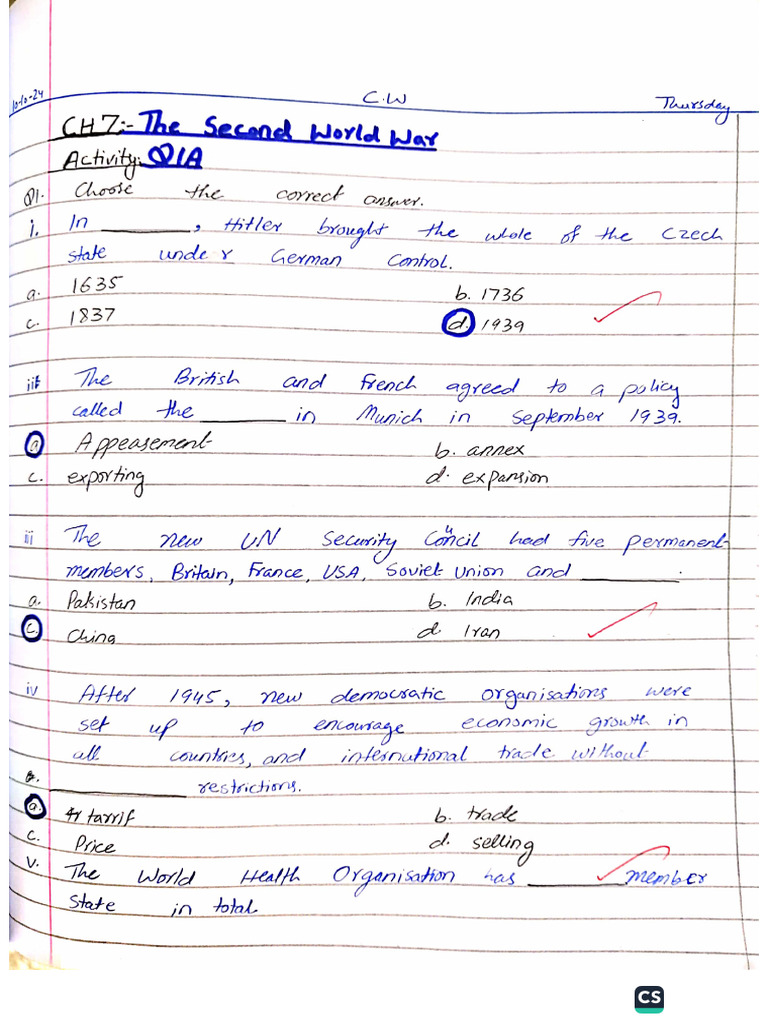 10-10-24
C.W
Thursday
CH 7:- The Second World War
Activity: Q1A
Q1. Choose the correct answer.
i. In ________, Hitler brought the whole of the Czech
state under German Control.
a. 1635 b. 1736
c. 1837 d. 1939
iii The British and French agreed to a policy
called the ________ in Munich in September 1939.
a Appeasement b. annex
c. exporting d. expansion
iii The new UN Security Council had five permanent
members, Britain, France, USA, Soviet Union and ________.
a. Pakistan b. India
c. China d. Iran
iv After 1945, new democratic organisations were
set up to encourage economic growth in
all countries, and international trade without
________ restrictions.
a. tarrif b. trade
c. Price d. selling
v. The World Health Organisation has ________ member
State in total
CS